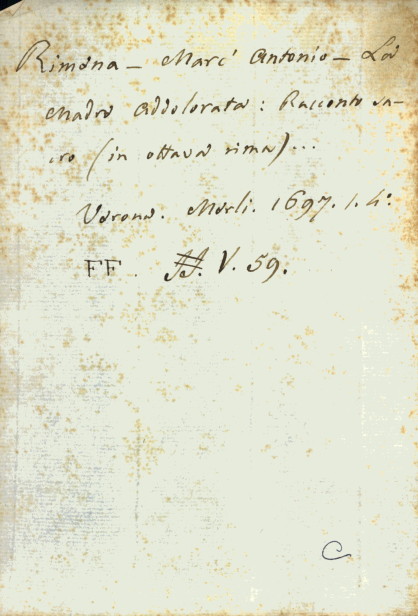 Rimena — Marc' Antonio — La
Madre Addolorata: Racconto sa-
cro (in ottava rima)...
Verona. Merli. 1697. 1. 4.°
FF. V. 59.
C